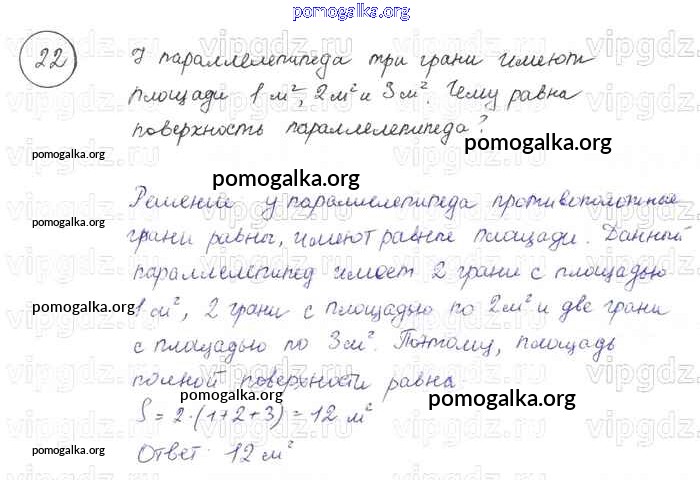 pomogalka.org
22
У параллелепипеда три грани имеют
площади 1 м², 2 м² и 3 м². Чему равна
поверхность параллелепипеда?
pomogalka.org
pomogalka.org
pomogalka.org
Решение у параллелепипеда противоположные
pomogalka.org
грани равны, имеют равные площади. Данный
параллелепипед имеет 2 грани с площадью
pomogalka.org
1 м², 2 грани с площадью по 2 м² и две грани
pomogalka.org
с площадью по 3 м². Поэтому, площадь
полной поверхности равна
pomogalka.org
S = 2·(1+2+3) = 12 м²
pomogalka.org
Ответ 12 м²